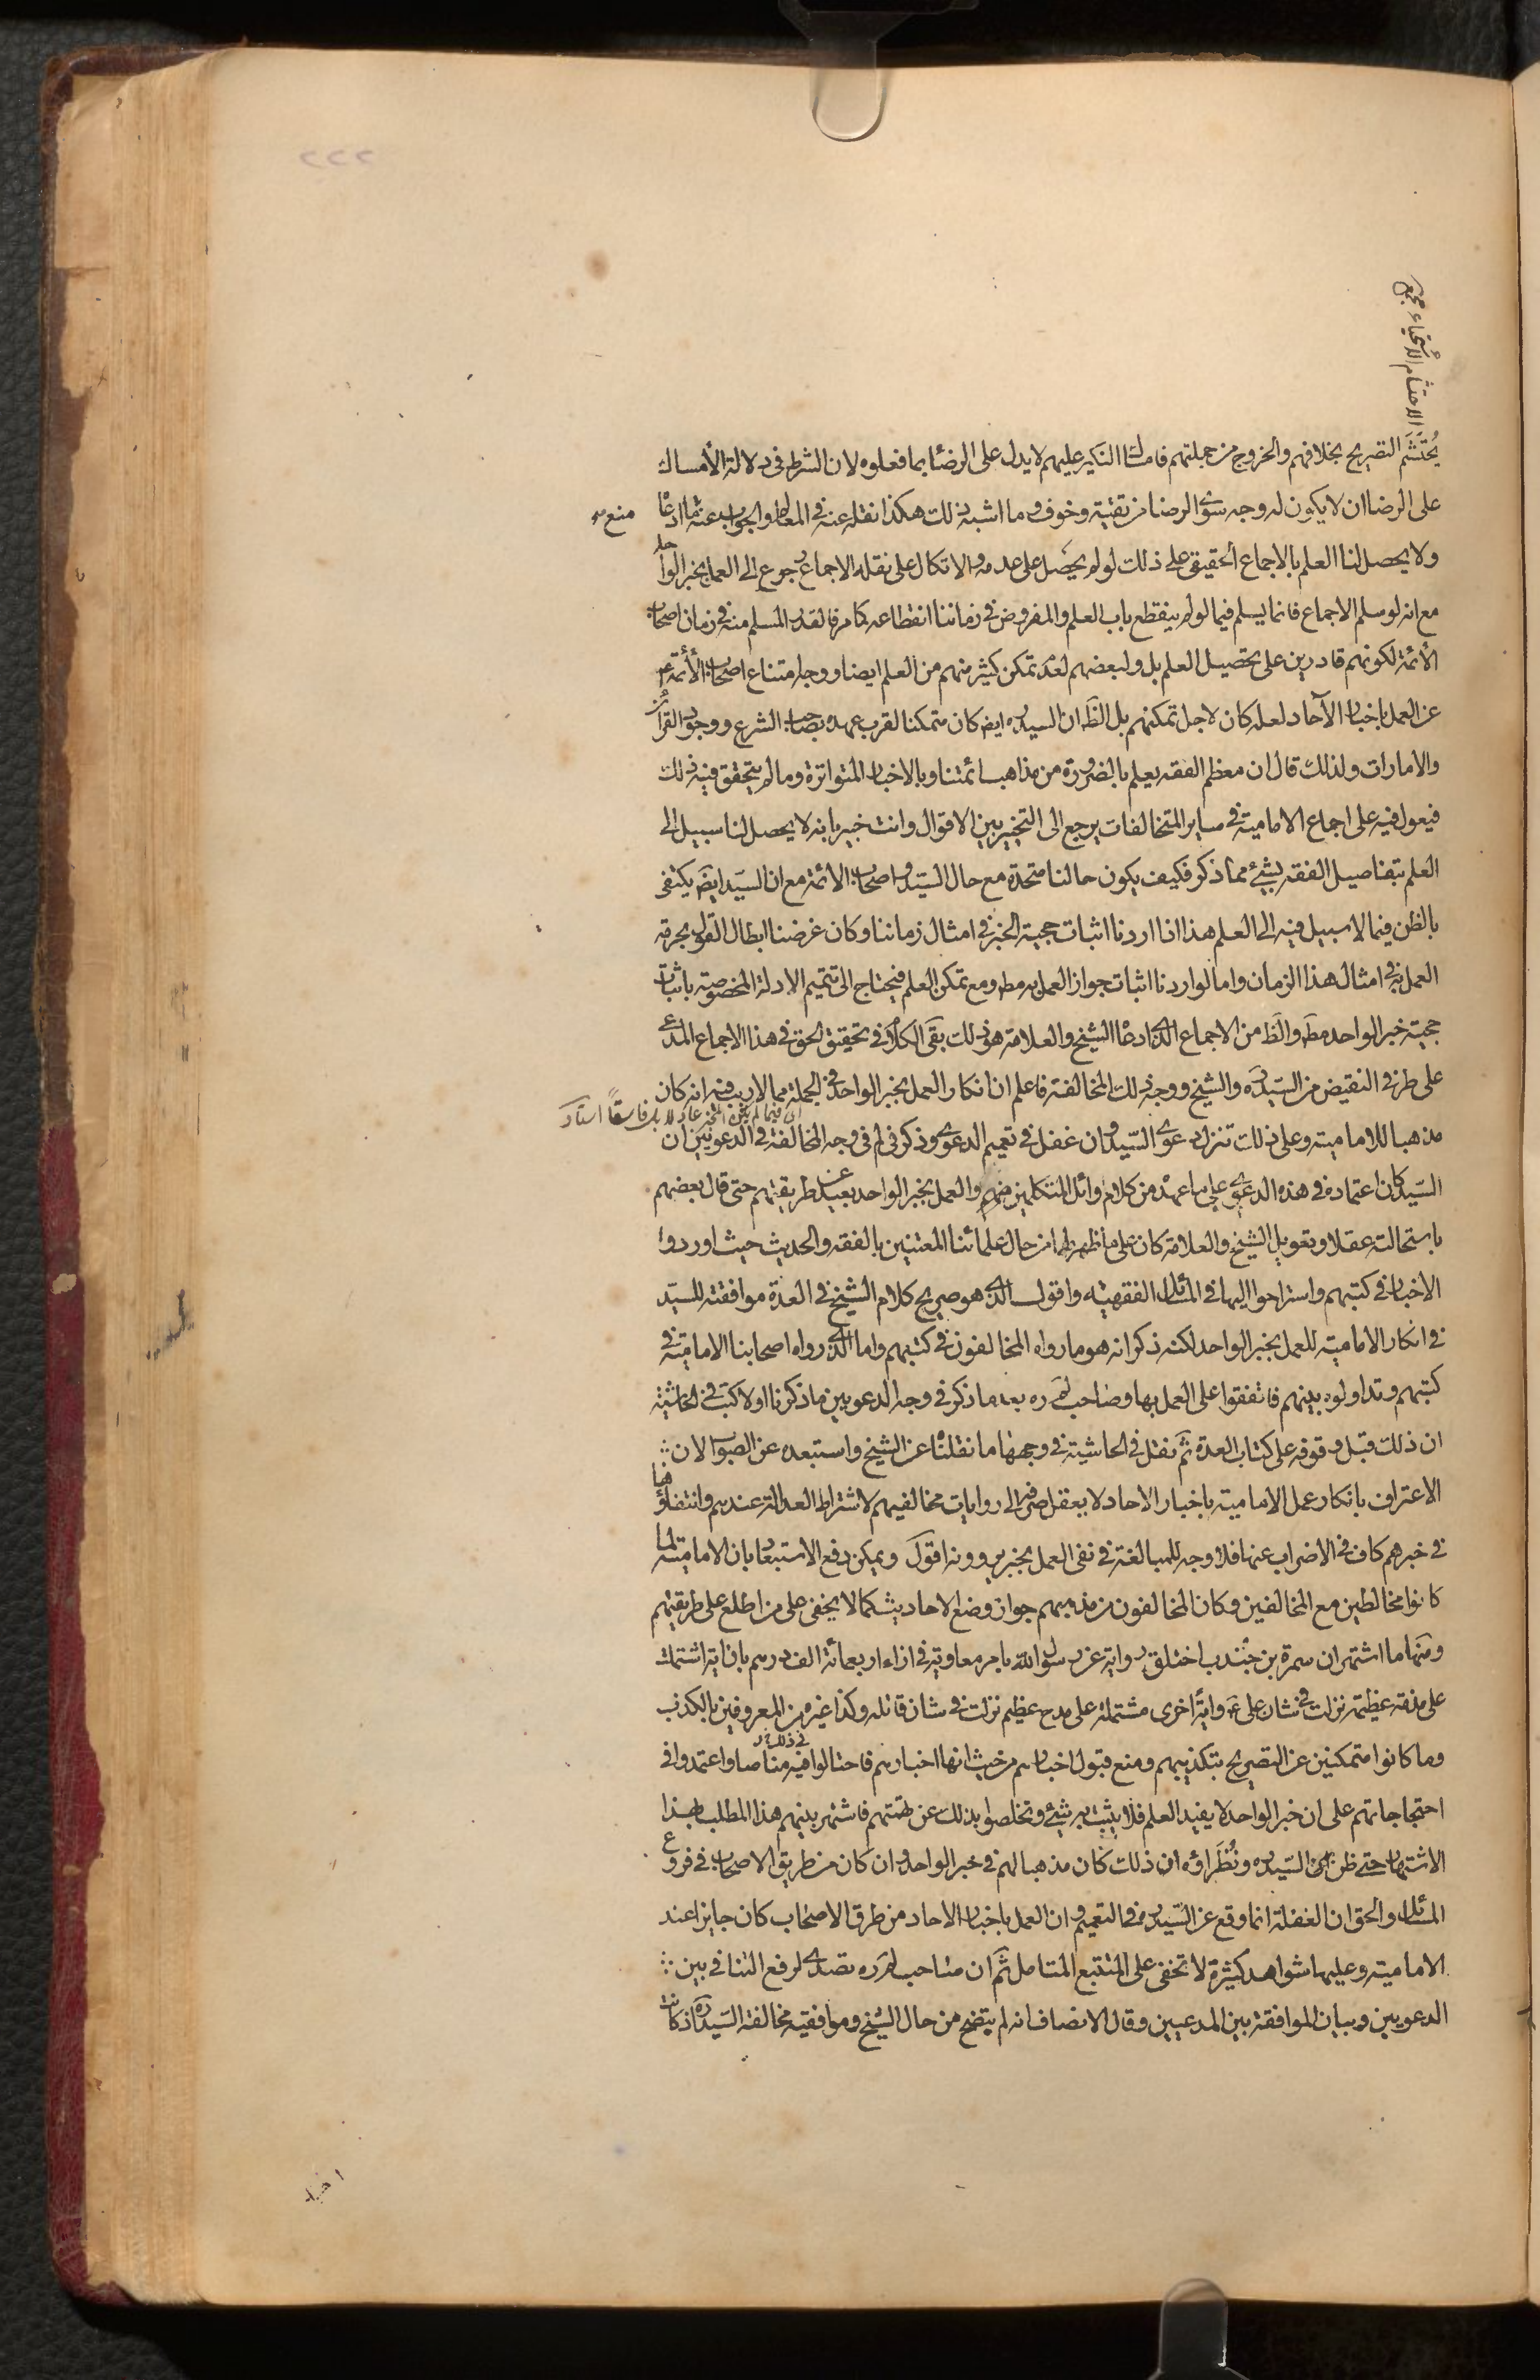 ٢٢٢
الاحتشام الاستحياء مجمع
يُحتَشَم التصريح بخلافهم والخروج من جملتهم فامساك النكير عليهم لا يدل على الرضا بما فعلوه لان الشرط في دلالة الأمساك
على الرضا ان لا يكون له وجه سوى الرضا من تقية وخوف وما اشبه ذلك هكذا نقله عنه في المعالم والجواب عنه ما ادعاه
منع
ولا يحصل لنا العلم بالاجماع الحقيقي على ذلك لو لم يحصل على عدمه والاتكال على نقله الاجماع رجوع الى العمل بخبر الواحد
مع انه لو سلم الاجماع فانما يسلم فيما لو لم ينقطع باب العلم والمفروض في زماننا انقطاعه كما مر فالقدر المسلم منه في زمان اصحاب
الأئمة لكونهم قادرين على تحصيل العلم بل ولبعضهم لعدم تمكن كثير منهم من العلم ايضا ووجه امتناع اصحاب الأئمة ع
عن العمل باخبار الآحاد لعله كان لاجل تمكنهم بل الظ ان السيد ره ايض كان متمكنا لقرب عهده بصاحب الشرع ووجود القرائن
والامارات ولذلك قال ان معظم الفقه يعلم بالضرورة من مذاهب ائمتنا وبالاخبار المتواترة وما لم يتحقق فيه ذلك
فيعول فيه على اجماع الامامية في ساير المتخالفات يرجع الى التخيير بين الاقوال وانت خبير بانه لا يحصل لنا سبيل الى
العلم بتفاصيل الفقه بشئ مما ذكر فكيف يكون حالنا متحدة مع حال السيد واصحاب الائمة مع ان السيد ايض يكتفى
بالظن فيما لا سبيل فيه الى العلم هذا اذا اردنا اثبات حجية الخبر في امثال زماننا وكان غرضنا ابطال القول بحرمة
العمل به في امثال هذا الزمان واما لو اردنا اثبات جواز العمل به مط ومع تمكن العلم فيحتاج الى تتميم الادلة المخصوصة باثبات
حجية خبر الواحد مط والظ من الاجماع الذى ادعاه الشيخ والعلامة هو ذلك بقى الكلام في تحقيق الحق في هذا الاجماع المدعى
على طرفي النقيض من السيد ره والشيخ ووجه ذلك المخالفة فاعلم ان انكار العمل بخبر الواحد في الجملة مما لا ريب فيه انه كان
مذهبا للامامية وعلى ذلك تنزل دعوى السيد وان غفل في تعميم الدعوى وذكر في لم في وجه المخالفة في الدعويين ان
السيد كان اعتماده في هذه الدعوى على ما عهده من كلام اوائل المتكلمين منهم والعمل بخبر الواحد بعيد عن طريقتهم حتى قال بعضهم
باستحالته عقلا وتعويل الشيخ والعلامة كان على ما ظهر لهما من حال علمائنا المعتنين بالفقه والحديث حيث اوردوا
الاخبار في كتبهم واستراحوا اليها في المسائل الفقهية واقول الذى هو صريح كلام الشيخ في العدة موافقته للسيد
في انكار الامامية للعمل بخبر الواحد لكنه ذكر انه هو ما رواه المخالفون في كتبهم واما الذى رواه اصحابنا الامامية في
كتبهم وتداولوه بينهم فاتفقوا على العمل بها وصاحب لم ره بعد ما ذكر في وجه الدعويين ما ذكرنا اولا كتب في الحاشية
ان ذلك قبل وقوفه على كتاب العدة ثم نقل في الحاشية في وجهها ما نقلناه عن الشيخ واستبعده عن الصواب لان
الاعتراف بانكار عمل الامامية باخبار الاحاد لا يعقل صرفه الى روايات مخالفيهم لاشتراط العدالة عندهم وانتفاؤها
في خبرهم كاف في الاضراب عنها فلا وجه للمبالغة في نفى العمل بخبر يروونه اقول ويمكن دفع الاستبعاد بان الامامية لما
كانوا مخالطين مع المخالفين وكان المخالفون من مذهبهم جواز وضع الاحاديث كما لا يخفى على من اطلع على طريقتهم
ومنها ما اشتهر ان سمرة بن جندب اختلق رواية عن رسول الله بامر معاوية في ازاء اربعمائة الف درهم بان اية اشتملت
على مذمة عظيمة نزلت في شان على ع واية اخرى مشتملة على مدح عظيم نزلت في شان قاتله وكذا غيره من المعروفين بالكذب
وما كانوا متمكنين عن التصريح بتكذيبهم ومنع قبول اخبارهم من حيث انها اخبارهم فاحتالوا في ذلك مناصا واعتمدوا في
احتجاجاتهم على ان خبر الواحد لا يفيد العلم فلا يثبت به شئ وتخلصوا بذلك عن تهمتهم فاشتهر بينهم هذا المطلب بهذا
الاشتهار حتى ظن السيد ره ونُظَراؤه ان ذلك كان مذهبا لهم في خبر الواحد وان كان من طريق الاصحاب في فروع
المسائل والحق ان الغفلة انما وقع عن السيد ره في التعميم وان العمل باخبار الاحاد من طرق الاصحاب كان جايزا عند
الامامية وعليها شواهد كثيرة لا تخفى على المتتبع المتامل ثم ان صاحب لم ره تصدى لرفع التنافي بين
الدعويين وبيان الموافقة بين المدعيين وقال الانصاف انه لم يتضح من حال الشيخ وموافقيه مخالفة السيد ره اذ كانت
اخبار